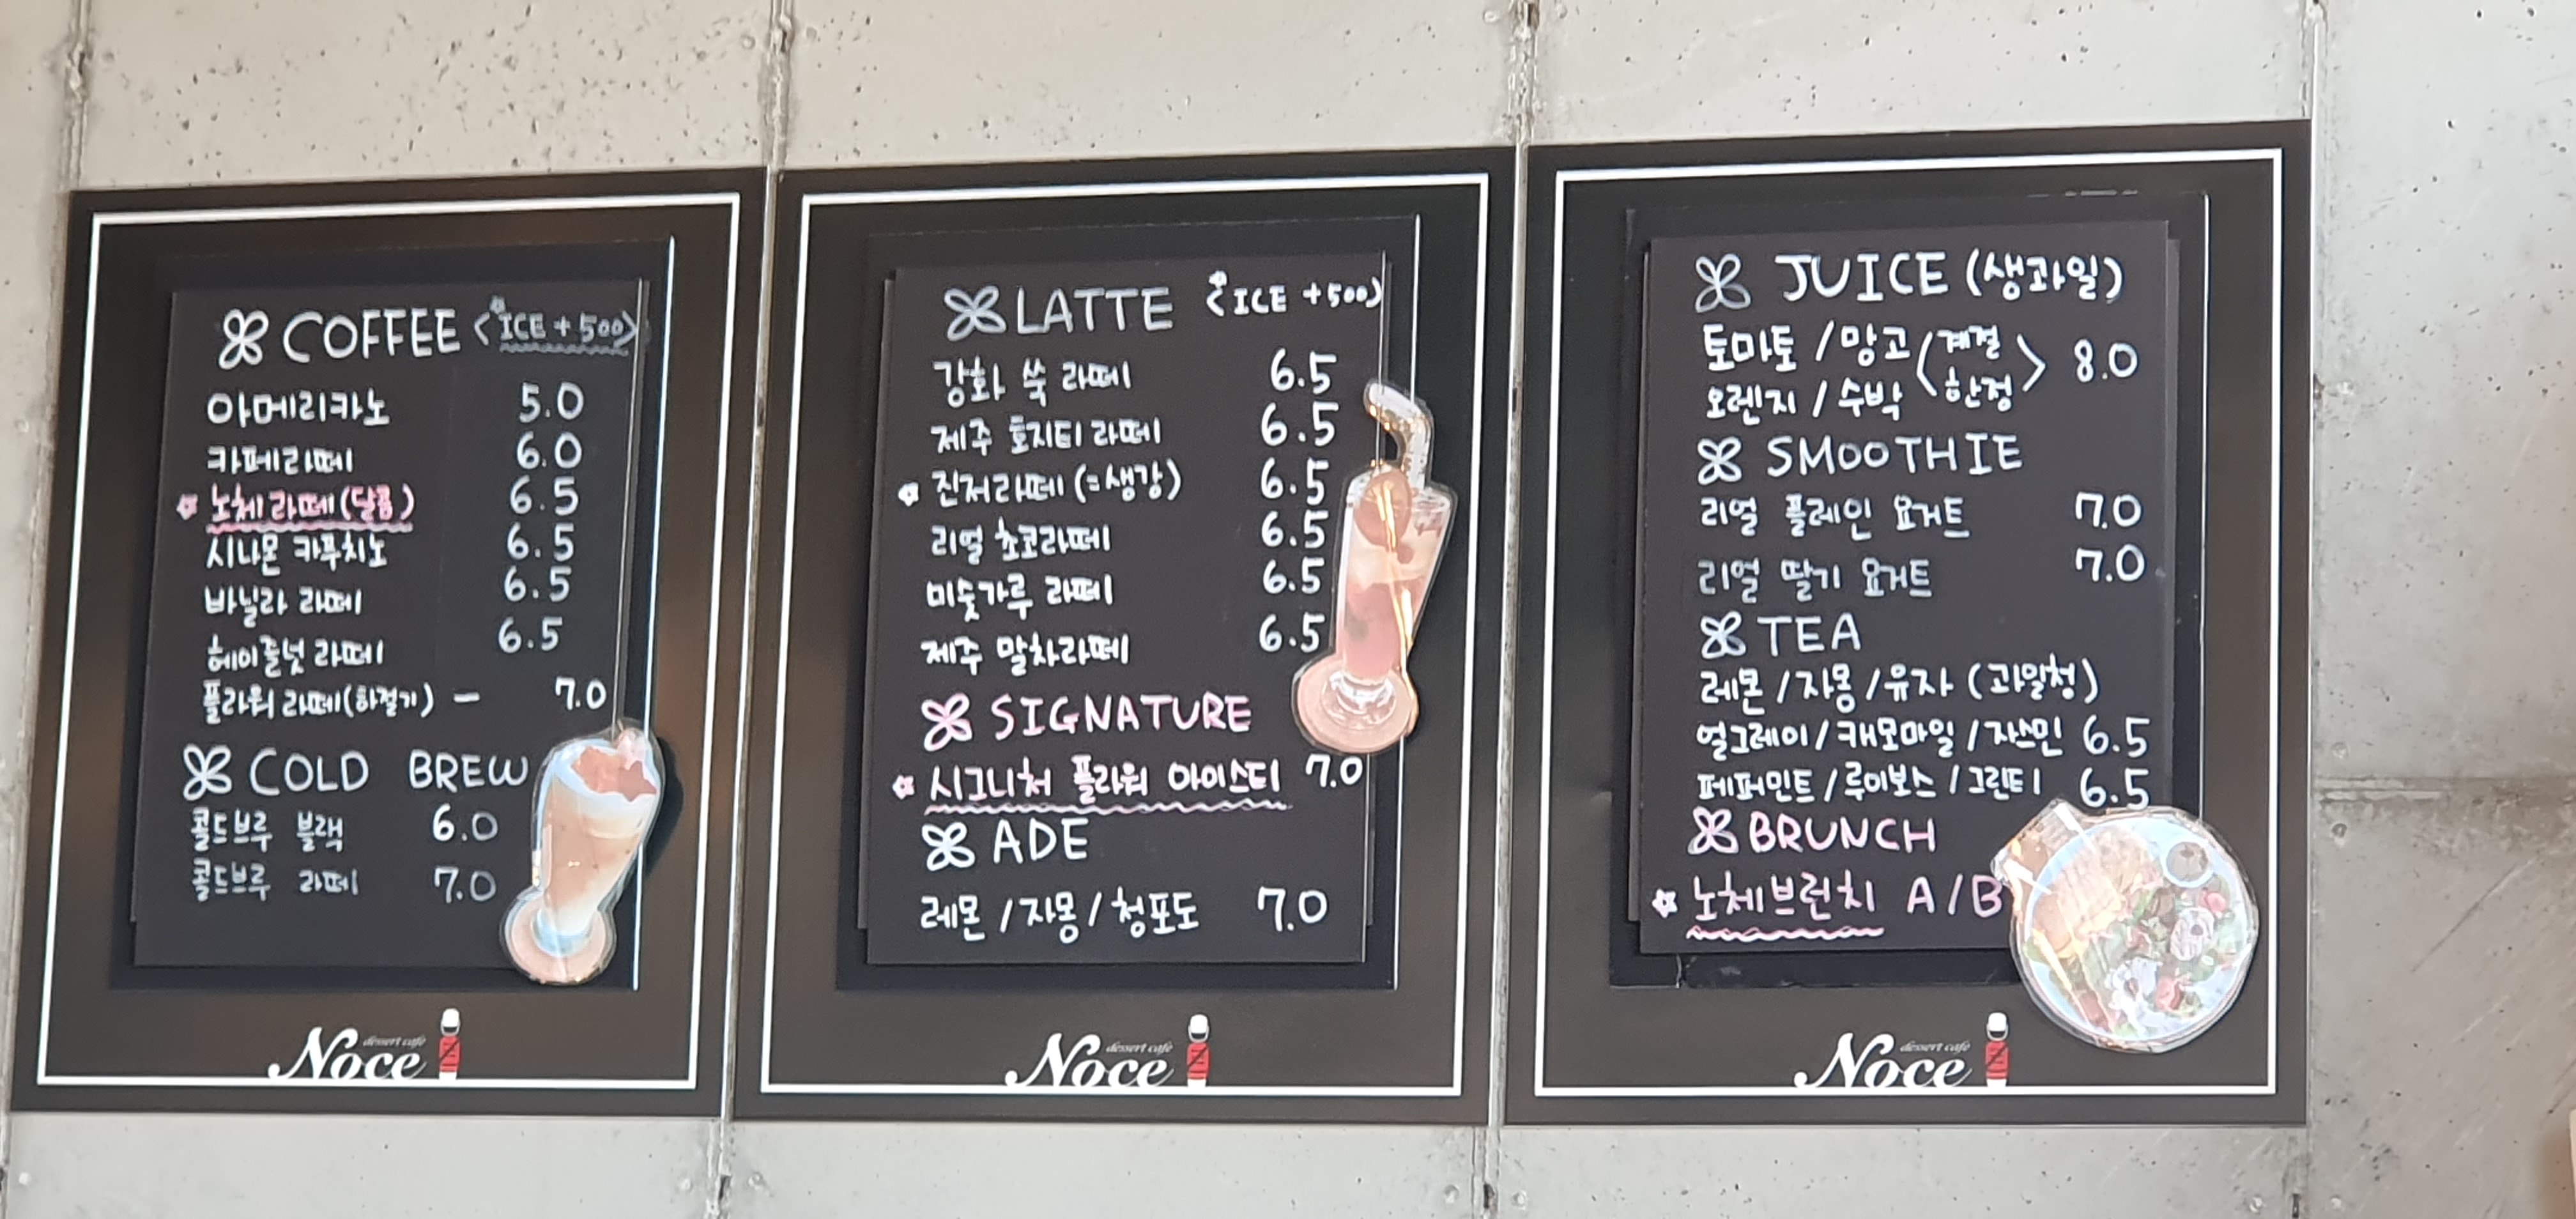 COFFEE <ICE + 500>
아메리카노 5.0
카페라떼 6.0
노체라떼(달콤) 6.5
시나몬 카푸치노 6.5
바닐라 라떼 6.5
헤이즐넛 라떼 6.5
플라워 라떼(하절기) — 7.0
COLD BREW
콜드브루 블랙 6.0
콜드브루 라떼 7.0
dessert café
Noce
LATTE <ICE +500)
강화 쑥 라떼 6.5
제주 호지티 라떼 6.5
진저라떼 (=생강) 6.5
리얼 초코라떼 6.5
미숫가루 라떼 6.5
제주 말차라떼 6.5
SIGNATURE
시그니처 플라워 아이스티 7.0
ADE
레몬 / 자몽 / 청포도 7.0
dessert café
Noce
JUICE (생과일)
토마토 / 망고 <계절
오렌지 / 수박 한정> 8.0
SMOOTHIE
리얼 플레인 요거트 7.0
리얼 딸기 요거트 7.0
TEA
레몬 / 자몽 / 유자 (과일청)
얼그레이 / 캐모마일 / 자스민 6.5
페퍼민트 / 루이보스 / 그린티 6.5
BRUNCH
노체브런치 A/B
dessert café
Noce